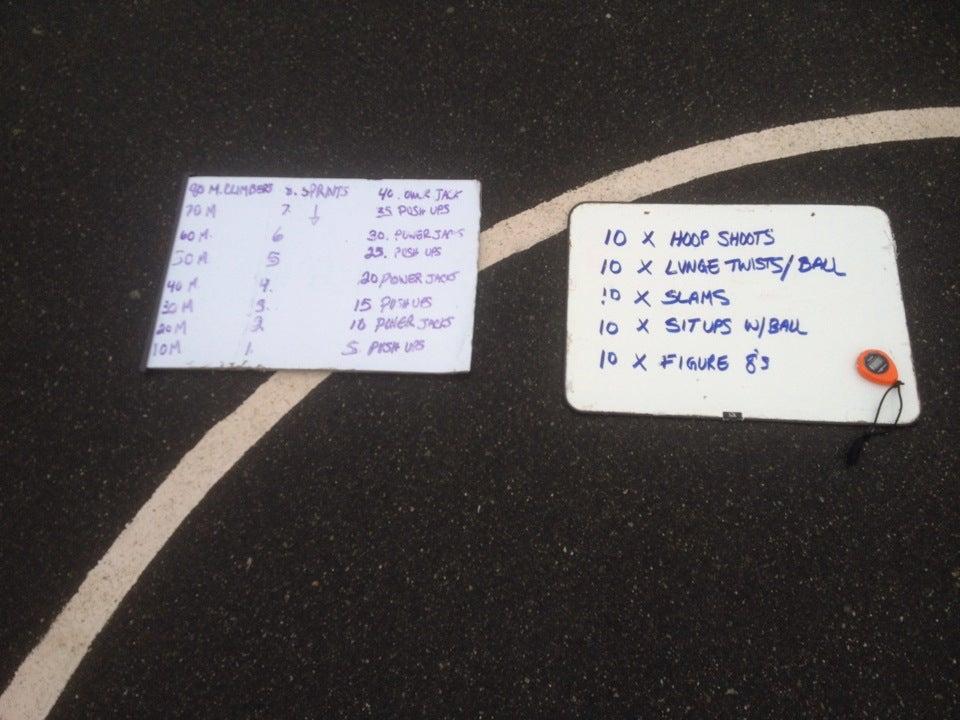 80 M.CLIMBERS 8. SPRINTS 40. JACK
70 M 7. ↓ 35 PUSH UPS
60 M. 6 30. POWER JACKS
50 M. 5 25. PUSH UPS
40 M. 4. 20 POWER JACKS
30 M 3. 15 PUSH UPS
20 M 2. 10 POWER JACKS
10 M 1. 5. PUSH UPS
10 X HOOP SHOOTS
10 X LUNGE TWISTS/BALL
10 X SLAMS
10 X SIT UPS W/BALL
10 X FIGURE 8's